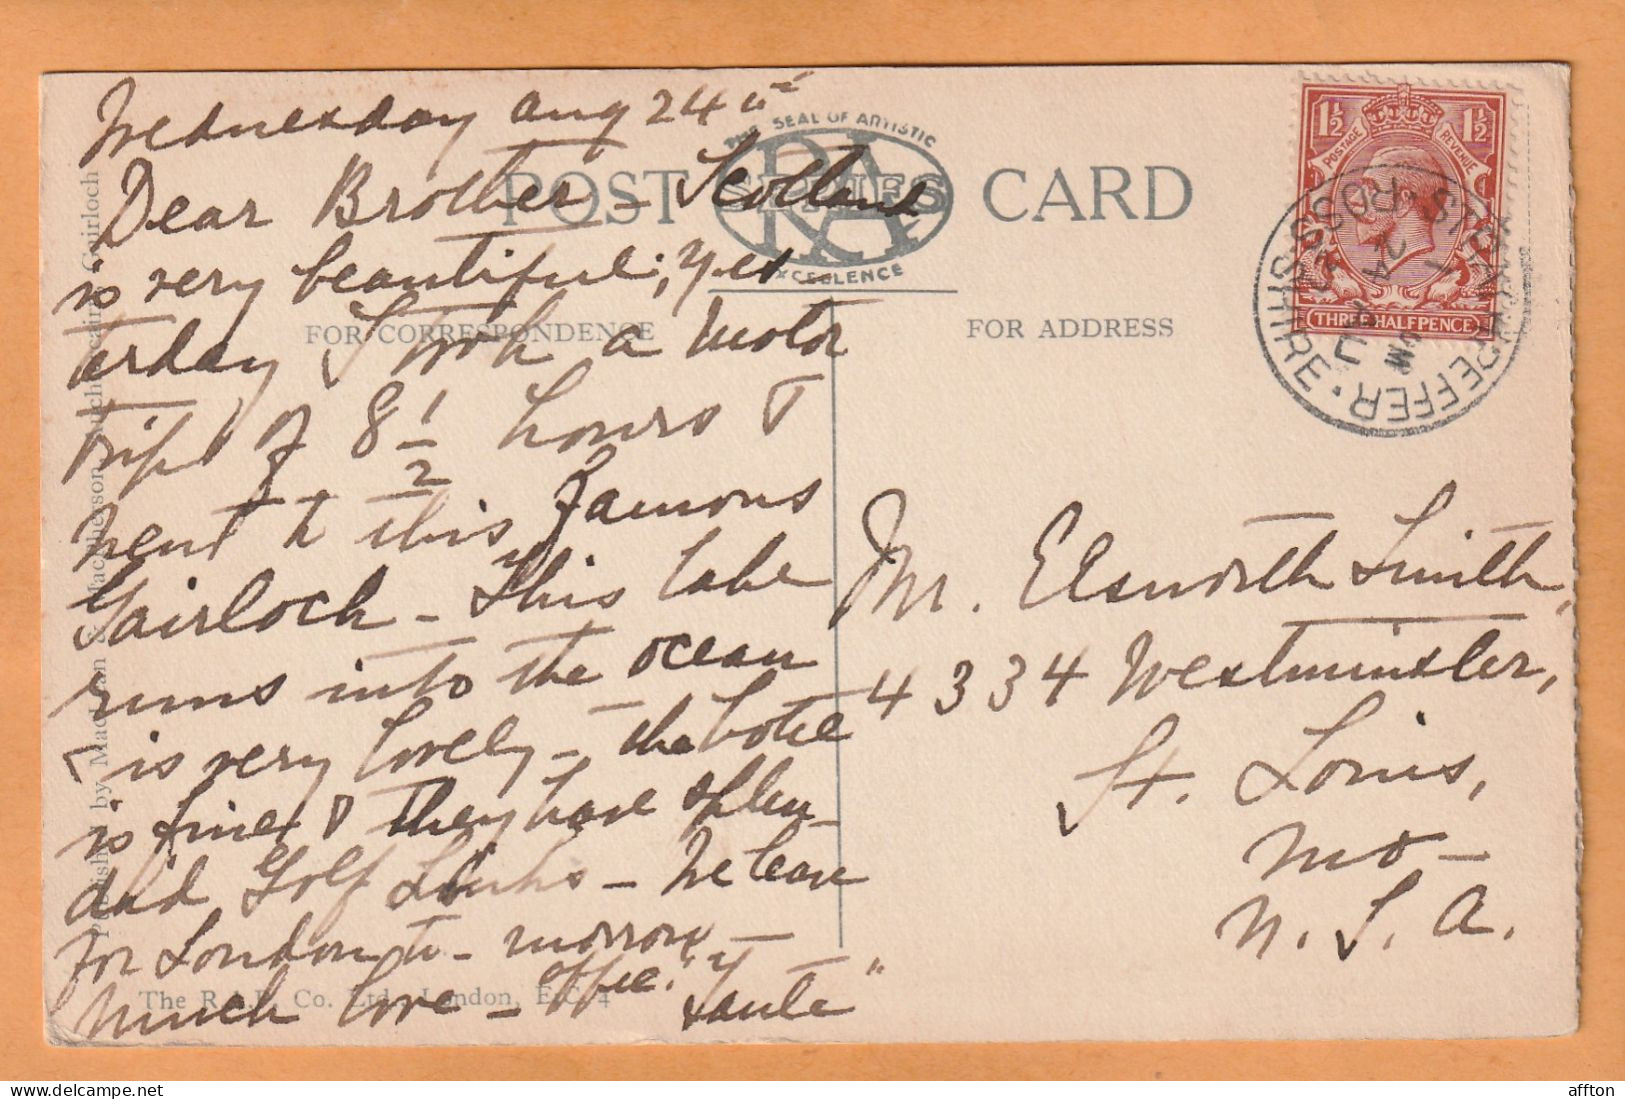 Wednesday Aug 24th
Dear Brother - Scotland
is very beautiful; yes
terday I took a motor
trip of 8 1/2 hours &
went to this famous
Gairloch - This lake
runs into the ocean
is very lovely - the hotel
is fine & they have splen-
did Golf Links - We leave
for London to-morrow -
Much love -
POST CARD
THE SEAL OF ARTISTIC
RA
SERIES
EXCELLENCE
FOR CORRESPONDENCE
FOR ADDRESS
The R.A.P. Co. Ltd., London, E.C.4
1½ 1½
POSTAGE REVENUE
THREE HALFPENCE
STRATHPEFFER
ROSS-SHIRE
24 AU
Mr. Elsworth Smith,
4334 Westminster,
St. Louis,
Mo -
U.S.A.
affton